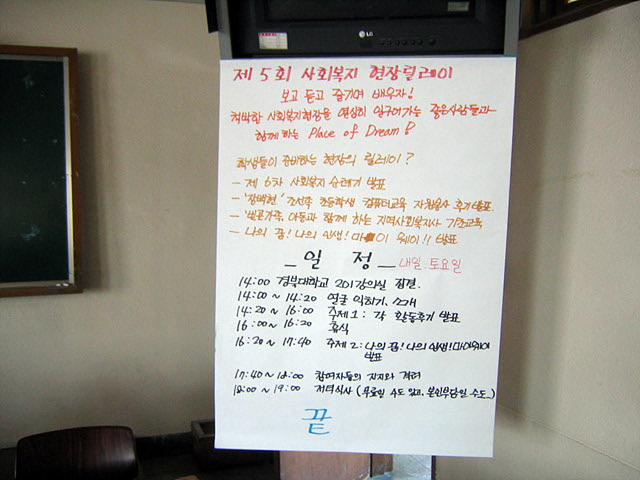 LG
제 5회 사회복지 현장릴레이
보고 듣고 즐기며 배우자!
척박한 사회복지현장을 열심히 일구어가는 좋은사람들과
함께 하는 Place of Dream!
학생들이 준비하는 현장의 릴레이?
- 제 6차 사회복지 순례기 발표
- '장백현' 조선족 초등학생 컴퓨터교육 자원봉사 후기 발표.
- 빈곤가족, 아동과 함께 하는 지역사회복지사 기초교육
- 나의 꿈! 나의 인생! 마이 웨이!! 발표
일 정 내일. 토요일
14:00 경북대학교 201강의실 집결.
14:00 ~ 14:20 얼굴 익히기, 소개
14:20 ~ 16:00 주제 1 : 각 활동후기 발표
16:00 ~ 16:20 휴식
16:20 ~ 17:40 주제 2 : 나의 꿈! 나의 인생! 마이웨이
발표
17:40 ~ 18:00 참여자들의 지지와 격려
18:00 ~ 19:00 저녁식사 (무료일 수도 있고, 본인부담일 수도..)
끝